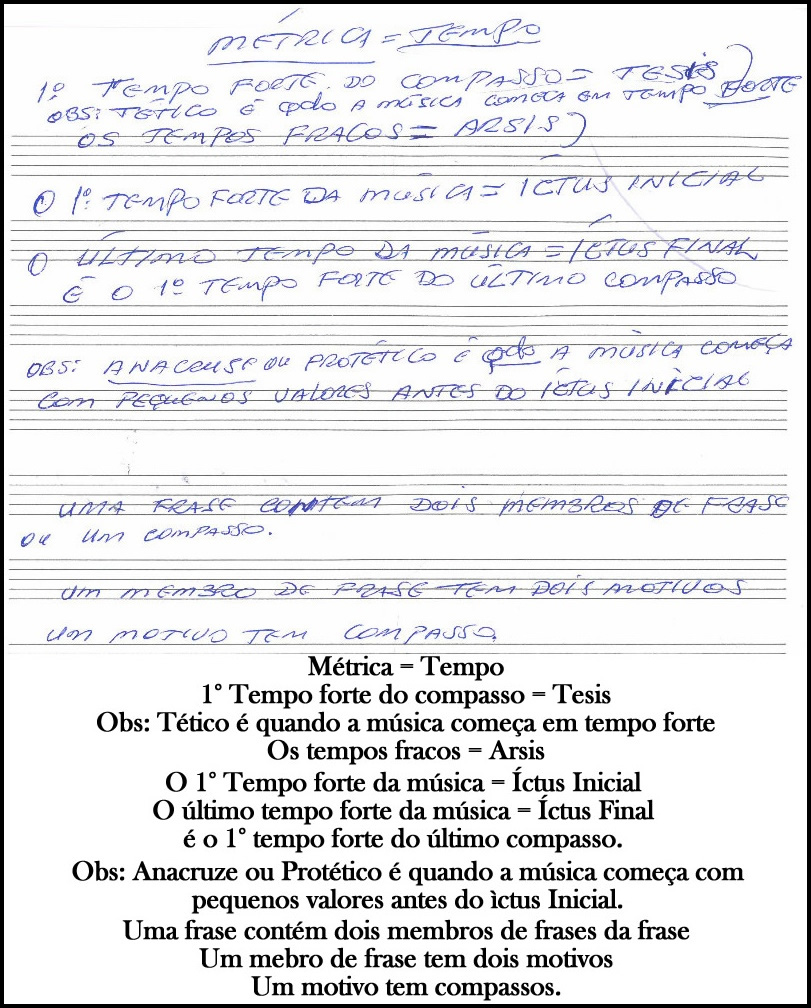 MÉTRICA = TEMPO
1º TEMPO FORTE DO COMPASSO = TESIS
OBS: TÉTICO É QDO A MÚSICA COMEÇA EM TEMPO FORTE
OS TEMPOS FRACOS = ARSIS
O 1º TEMPO FORTE DA MÚSICA = ICTUS INICIAL
O ÚLTIMO TEMPO DA MÚSICA = ÍCTUS FINAL
É O 1º TEMPO FORTE DO ÚLTIMO COMPASSO
OBS: ANACRUSE OU PROTÉTICO É QDO A MÚSICA COMEÇA
COM PEQUENOS VALORES ANTES DO ICTUS INICIAL
UMA FRASE CONTEM DOIS MEMBROS DE FRASE
OU UM COMPASSO.
UM MEMBRO DE FRASE TEM DOIS MOTIVOS
UM MOTIVO TEM COMPASSO.
Métrica = Tempo
1° Tempo forte do compasso = Tesis
Obs: Tético é quando a música começa em tempo forte
Os tempos fracos = Arsis
O 1° Tempo forte da música = Íctus Inicial
O último tempo forte da música = Íctus Final
é o 1° tempo forte do último compasso.
Obs: Anacruze ou Protético é quando a música começa com
pequenos valores antes do ìctus Inicial.
Uma frase contém dois membros de frases da frase
Um mebro de frase tem dois motivos
Um motivo tem compassos.